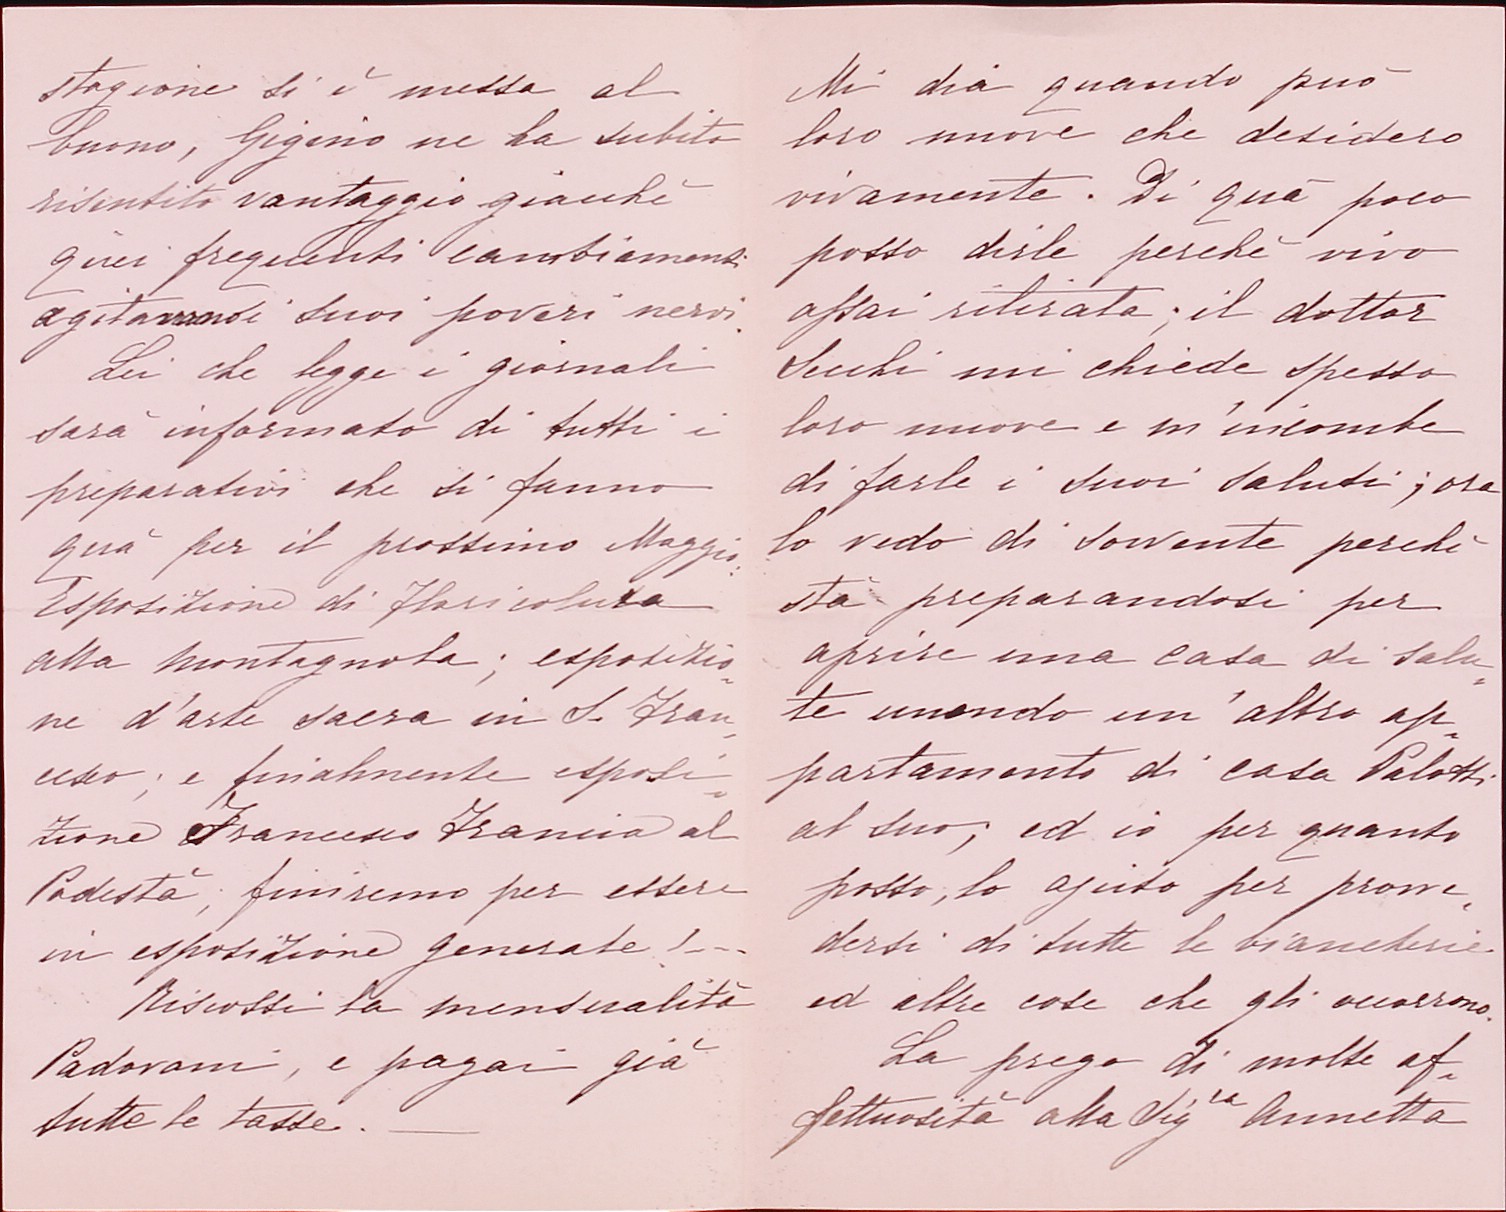 stagione si è messa al
buono, Gigino ne ha subito
risentito vantaggio giacchè
quei frequenti cambiamenti
agitavano i suoi poveri nervi.
Lei che legge i giornali
sarà informato di tutti i
preparativi che si fanno
quà per il prossimo Maggio.
Esposizione di Floricoltura
alla Montagnola; esposizio-
ne d'arte sacra in S. Fran-
cesco; e finalmente esposi-
zione Francesco Francia al
Podestà; finiremo per essere
in esposizione generale!--
Riscossi la mensualità
Padovani, e pagai già
tutte le tasse. —
Mi dia quando può
loro nuove che desidero
vivamente. Di quà poco
posso dirle perchè vivo
assai ritirata; il dottor
Secchi mi chiede spesso
loro nuove e m'incombe
di farle i suoi saluti; ora
lo vedo di sovvente perchè
stà preparandosi per
aprire una casa di salu-
te unendo un'altro ap-
partamento di casa Palotti
al suo; ed io per quanto
posso, lo ajuto per provve-
dersi di tutte le biancherie
ed altre cose che gli occorrono.
La prego di molte af-
fettuosità alla Sig.ra Annetta